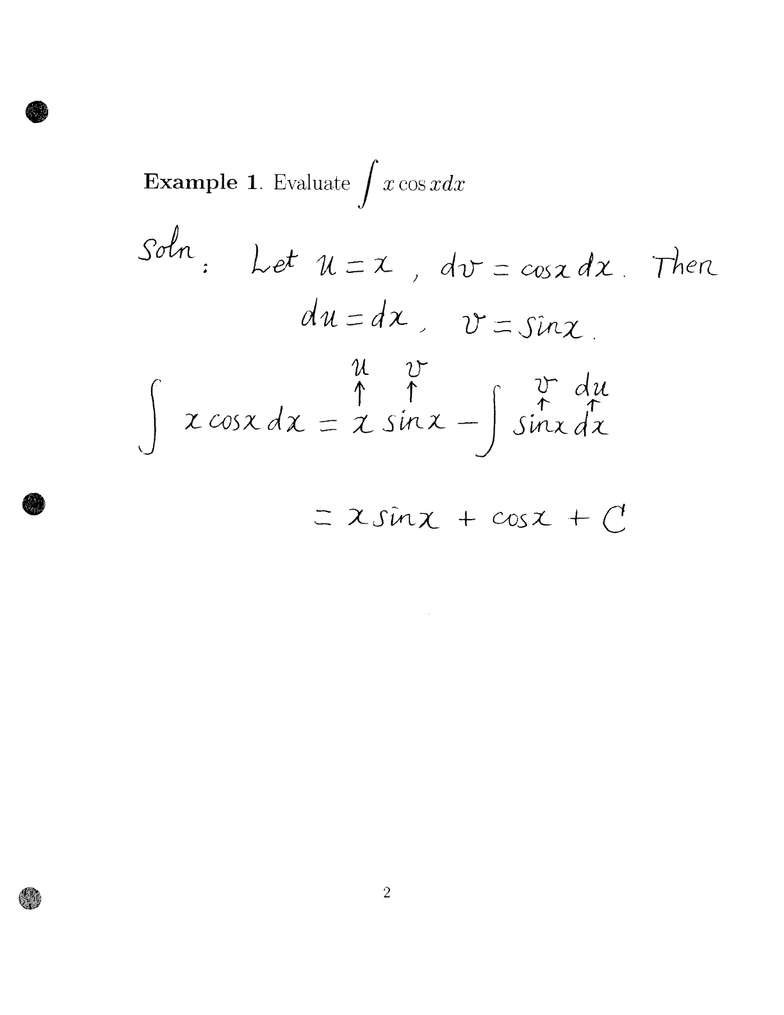 Example 1. Evaluate ∫ x cos xdx
Soln: Let u = x , dv = cosx dx. Then
du = dx, v = sinx.
u v v du
↑ ↑ ↑ ↑
∫ x cosx dx = x sinx − ∫ sinx dx
= x sinx + cosx + C
2